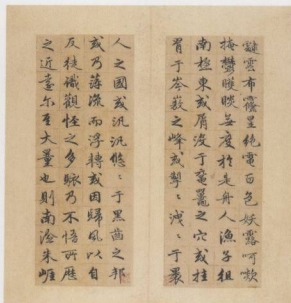 雲布昱絕電百色妖露呵欻
掩鬱矆睒無度於是舟人漁子徂
南極東或屑沒于黿鼉之穴或挂
罥于岑之峰或掣〻洩〻于裸
人之國或汎汎悠〻于黑齒之邦
或乃萍流而浮轉或因歸風以自
反徒識觀怪之多駭乃不悟所歷
之近遠尔其大量也則南澰朱崕